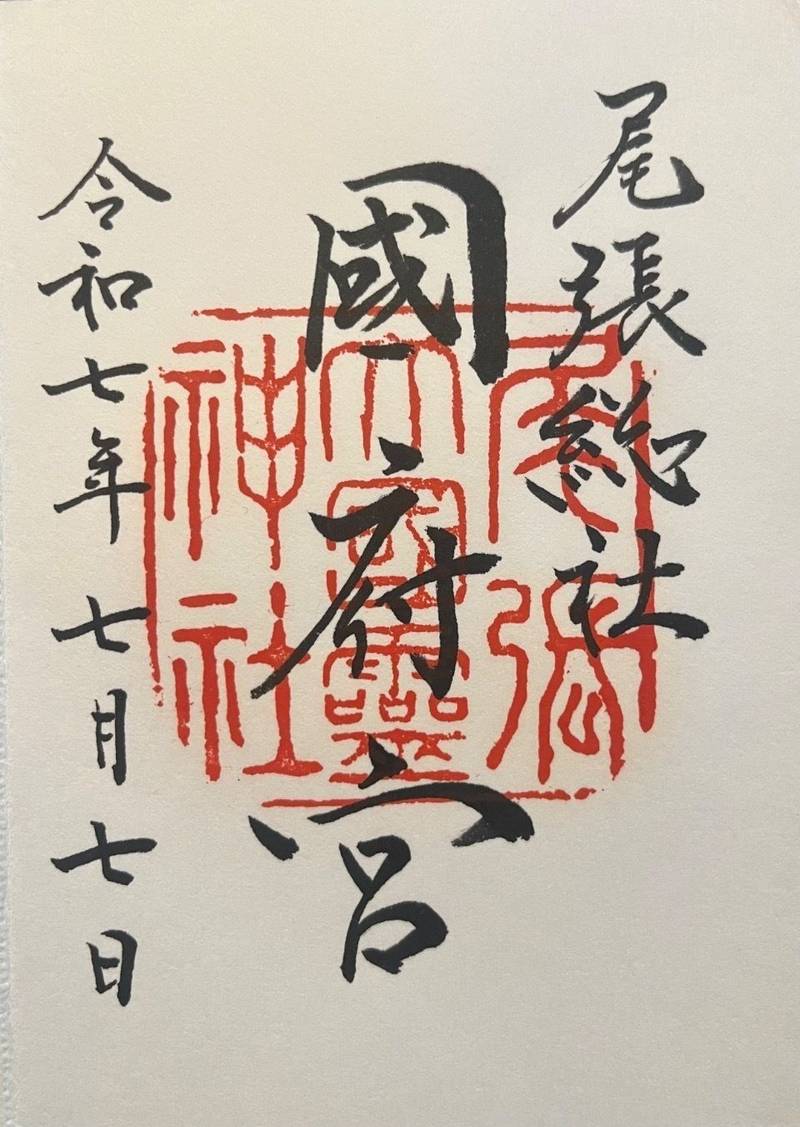 尾張総社
國府宮
令和七年七月七日
尾張
大國霊
神社